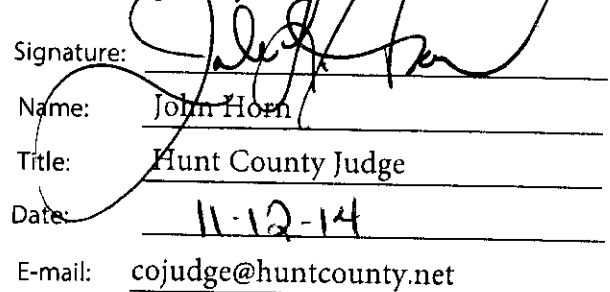 Signature:
Name: John Horn
Title: Hunt County Judge
Date: 11-12-14
E-mail: cojudge@huntcounty.net